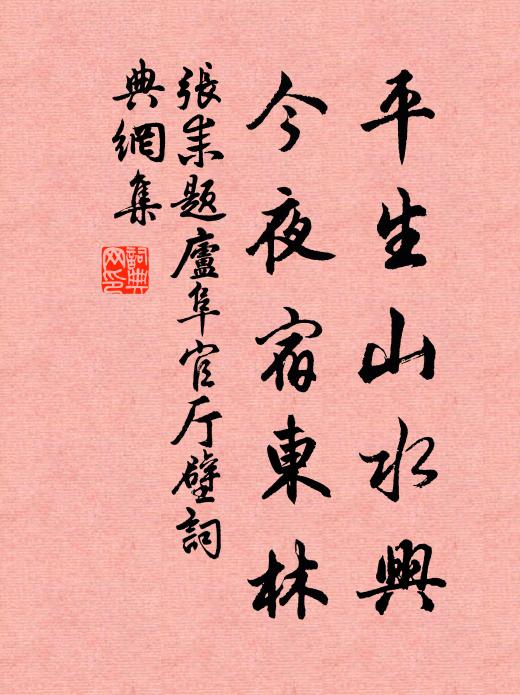 平生山水興
今夜宿東林
張耒題廬阜官厅壁詞
典網集
詞典网印